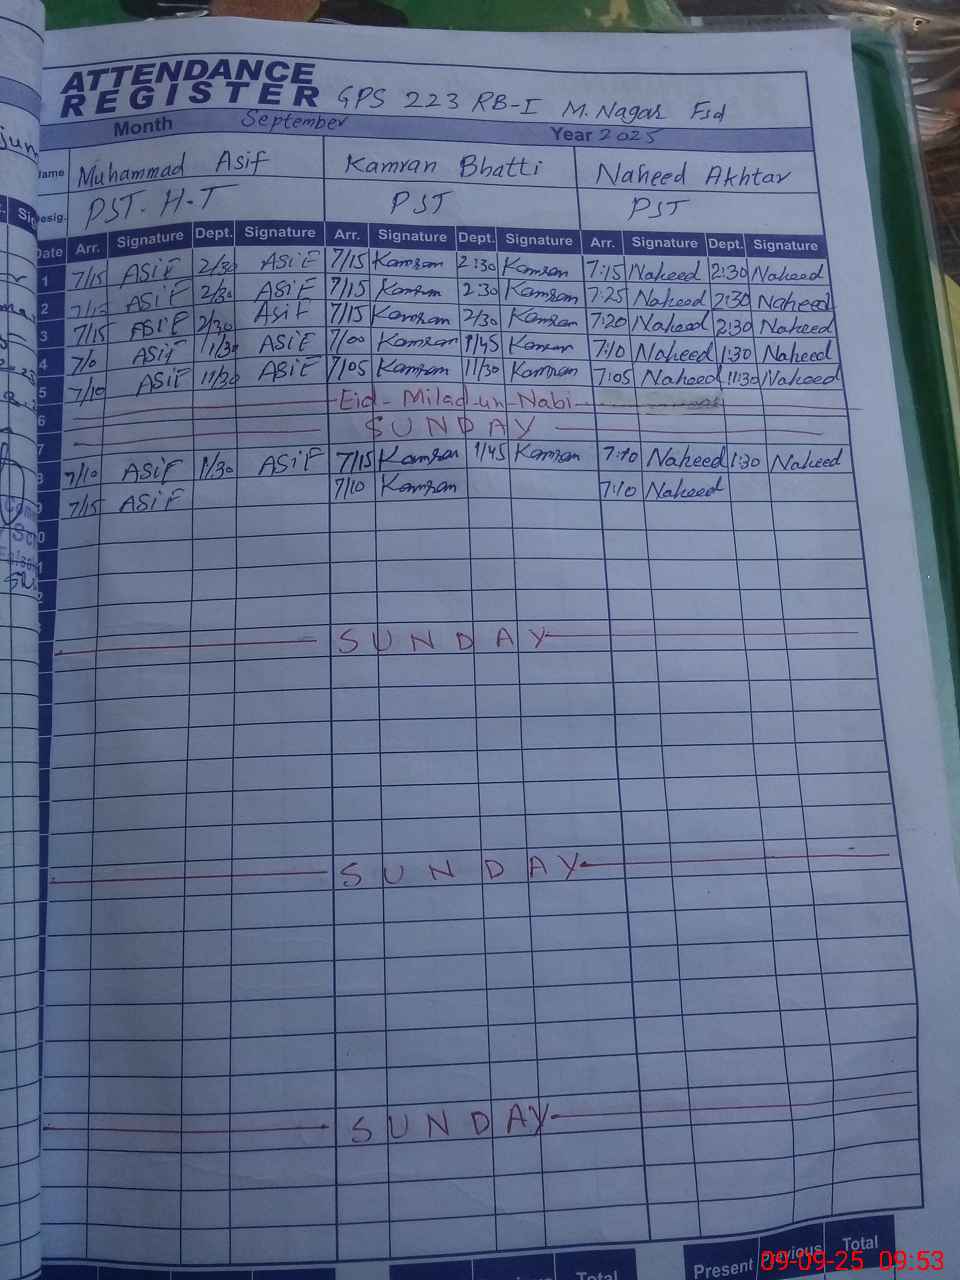 ATTENDANCE
REGISTER GPS 223 RB-I M.Nagar Fsd
Month September Year 2025
Name Muhammad Asif Kamran Bhatti Naheed Akhtar
Desig. PST. H-T PST PST
Date Arr. Signature Dept. Signature Arr. Signature Dept. Signature Arr. Signature Dept. Signature
1 7/15 ASiF 2/30 ASiF 7/15 Kamran 2:30 Kamran 7:15 Naheed 2:30 Naheed
2 7/15 ASiF 2/30 ASiF 7/15 Kamran 2:30 Kamran 7:25 Naheed 2:30 Naheed
3 7/15 ASiF 2/30 ASiF 7/15 Kamran 2/30 Kamran 7:20 Naheed 2:30 Naheed
4 7/0 ASiF 1/30 ASiF 7/00 Kamran 1/45 Kamran 7:10 Naheed 1:30 Naheed
5 7/10 ASiF 11/30 ASiF 7/05 Kamran 11/30 Kamran 7:05 Naheed 11:30 Naheed
6 Eid-Milad-un-Nabi
7 SUNDAY
8 7/10 ASiF 1/30 ASiF 7/15 Kamran 1/45 Kamran 7:10 Naheed 1:30 Naheed
9 7/15 ASiF 7/10 Kamran 7:10 Naheed
SUNDAY
SUNDAY
SUNDAY
Total Present Previous Total
09-09-25 09:53